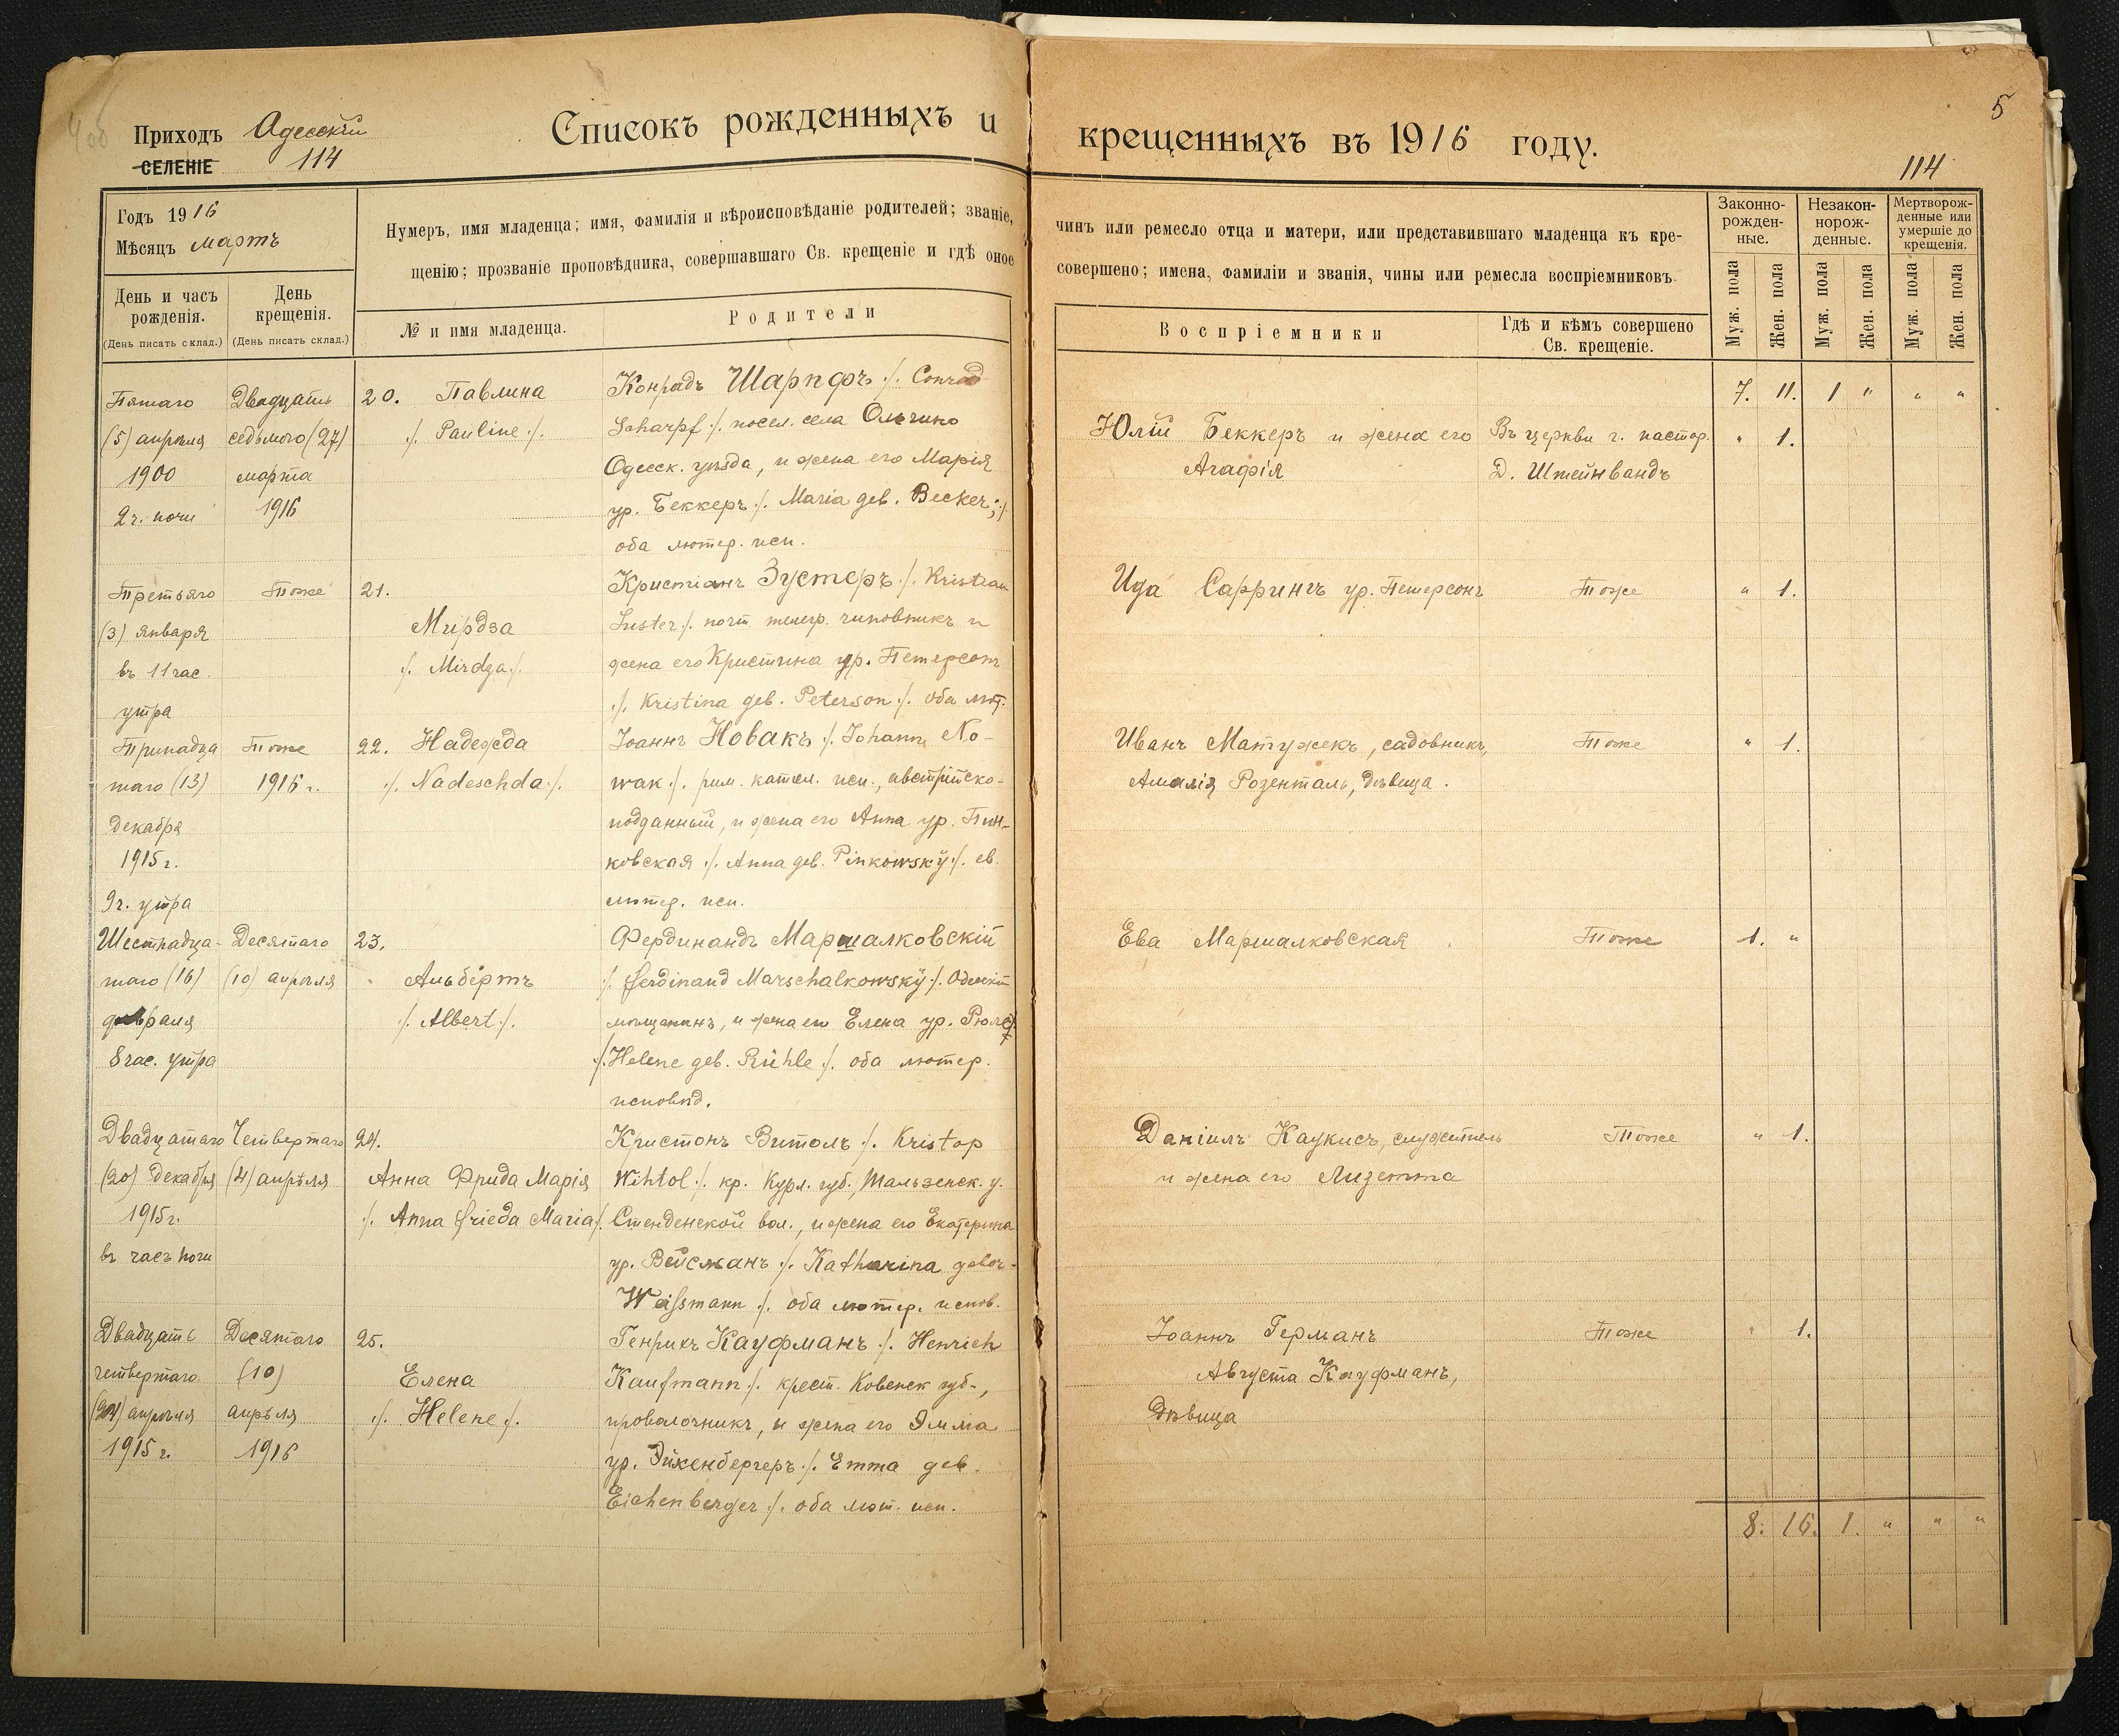 4об
Приходъ Одесскій
СЕЛЕНІЕ 114
Списокъ рожденныхъ и
Годъ 1916
Мѣсяцъ мартъ
Нумеръ, имя младенца; имя, фамилія и вѣроисповѣданіе родителей; званіе,
щенію; прозваніе проповѣдника, совершавшаго Св. крещеніе и гдѣ оное
День и часъ рожденія.
(День писать склад.)
День крещенія.
(День писать склад.)
№ и имя младенца.
Родители
Пятаго
(5) апрѣля
1900
2 ч. ночи
Двадцать
седьмого (27)
марта
1916
20. Павлина
./. Pauline ./.
Конрадъ Шарпфъ ./. Conrad
Scharpf ./. посел. села Ольгино
Одесск. уѣзда, и жена его Марія
ур. Беккеръ ./. Maria geb. Becker; ./.
оба лютер. исп.
Третьяго
(3) января
въ 11 час.
утра
Тоже
21.
Мирдза
./. Mirdza ./.
Кристіанъ Зустеръ ./. Kristian
Suster ./. почт. телегр. чиновникъ и
жена его Кристина ур. Петерсонъ
./. Kristina geb. Peterson ./. оба лют.
Тринадца
таго (13)
декабря
1915 г.
9 ч. утра
Тоже
1916 г.
22. Надежда
./. Nadeschda ./.
Іоаннъ Новакъ ./. Johann No-
wak ./. рим. катол. исп., австрійско-
подданный, и жена его Анна ур. Пин-
ковская ./. Anna geb. Pinkowsky ./. ев.
лютер. исп.
Шестнадца-
таго (16)
февраля
8 час. утра
Десятаго
(10) апрѣля
23.
Альбертъ
./. Albert ./.
Фердинандъ Маршалковскій
./. Ferdinand Marschalkowsky ./. Одесскій
мѣщанинъ, и жена его Елена ур. Рюле
./. Helene geb. Rühle ./. оба лютер.
исповѣд.
Двадцатаго
(20) декабря
1915 г.
въ часъ ночи
Четвертаго
(4) апрѣля
24.
Анна Фрида Марія
./. Anna Frieda Maria ./.
Кристопъ Витоль ./. Kristop
Wihtol ./. кр. Курл. губ., Тальзенск. у.
Стенденской вол., и жена его Екатерина
ур. Вейсманъ ./. Katharina gebor-
Weissmann ./. оба лютер. испов.
Двадцать
четвертаго
(24) апрѣля
1915 г.
Десятаго
(10)
апрѣля
1916
25.
Елена
./. Helene ./.
Генрихъ Кауфманъ ./. Henrich
Kaufmann ./. крест. Ковенск губ.,
проволочникъ, и жена его Эмма
ур. Эйхенбергеръ ./. Emma geb.
Eichenberger ./. оба лют. исп.
5
крещенныхъ въ 1916 году.
114
чинъ или ремесло отца и матери, или представившаго младенца къ кре-
совершено; имена, фамиліи и званія, чины или ремесла воспріемниковъ.
Воспріемники
Гдѣ и кѣмъ совершено
Св. крещеніе.
Законно-
рожден-
ные.
Незакон-
норож-
денные.
Мертворож-
денные или
умершіе до
крещенія.
Муж. пола
Жен. пола
Муж. пола
Жен. пола
Муж. пола
Жен. пола
7. 11. 1 " " "
Юлій Беккеръ и жена его Въ церкви г. пастор. " 1.
Агафія Д. Штейнвандъ
Ида Саррингъ ур. Петерсонъ Тоже " 1.
Иванъ Матужекъ, садовникъ, Тоже " 1.
Амалія Розенталь, дѣвица.
Ева Маршалковская Тоже 1. "
Даніилъ Каукисъ, служитель Тоже " 1.
и жена его Лизетта
Іоаннъ Германъ Тоже " 1.
Августа Кауфманъ,
Дѣвица
8. 16. 1. " " "